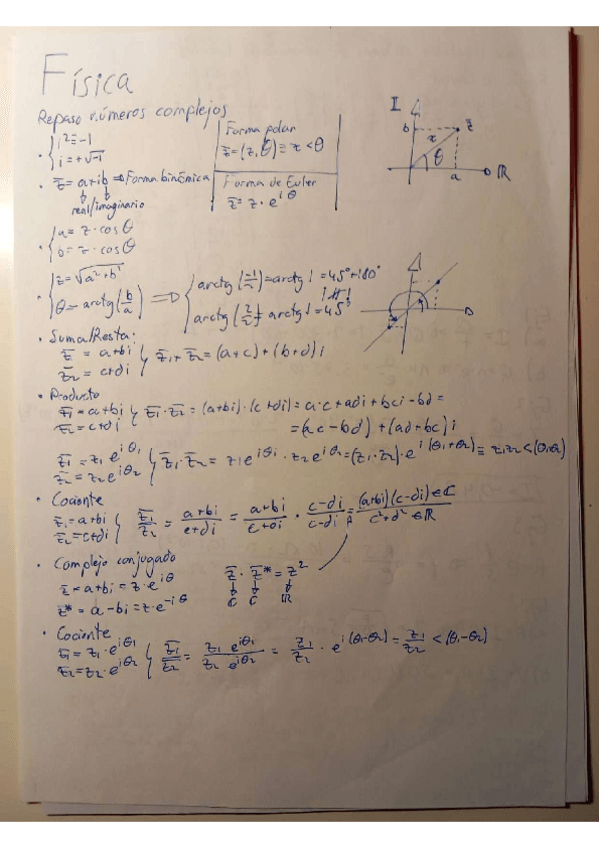 Física
Repaso números complejos
· { i²=-1
i=+√-1
Forma polar
z̄=(z,θ)≡z<θ
Forma de Euler
z̄=z·e^iθ
I
b
z
z̄
θ
a
ℝ
· z̄=a+ib ⇒ Forma binómica
real/imaginario
· { a=z·cosθ
b=z·cosθ
· { z=√a²+b²
θ=arctg(b/a) ⇒ { arctg(-1/-1)=arctg 1=45°+180°
arctg(2/2)=arctg 1=45°
· Suma/Resta:
z̄ = a+bi
z̄₂ = c+di } z̄₁+z̄₂=(a+c)+(b+d)i
· Producto
z̄₁=a+bi
z̄₂=c+di } z̄₁·z̄₂=(a+bi)·(c+di)=a·c+adi+bci-bd=
=(ac-bd)+(ad+bc)i
z̄₁=z₁e^iθ₁
z̄₂=z₂e^iθ₂ } z̄₁·z̄₂=z₁e^iθ₁·z₂e^iθ₂=(z₁·z₂)·e^i(θ₁+θ₂)≡z₁z₂<(θ₁θ₂)
· Cociente
z̄₁=a+bi
z̄₂=c+di } z̄₁/z̄₂ = a+bi/c+di = a+bi/c+di · c-di/c-di = (a+bi)(c-di)∈ℂ/c²+d²∈ℝ
· Complejo conjugado
z̄=a+bi=z·e^iθ
z̄·z̄*=z²
ℂ ℂ ℝ
z̄*=a-bi=z·e^-iθ
· Cociente
z̄₁=z₁·e^iθ₁
z̄₂=z₂·e^iθ₂ } z̄₁/z̄₂ = z₁e^iθ₁/z₂e^iθ₂ = z₁/z₂ · e^i(θ₁-θ₂) = z₁/z₂<(θ₁-θ₂)